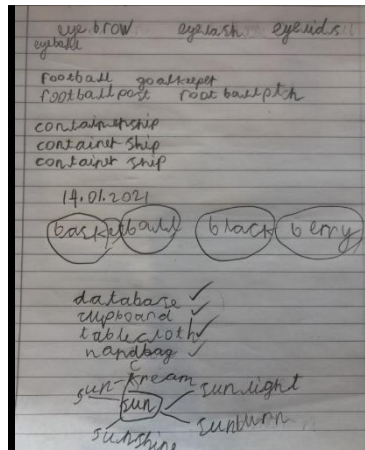 eyebrow eyelash eyelids
eyeball
football goalkeeper
football post football pitch
containership
container ship
container ship
14.01.2021
basketball blackberry
database ✓
cupboard ✓
tablecloth ✓
handbag ✓
c
sun-kream sunlight
sun
sunshine sunburn